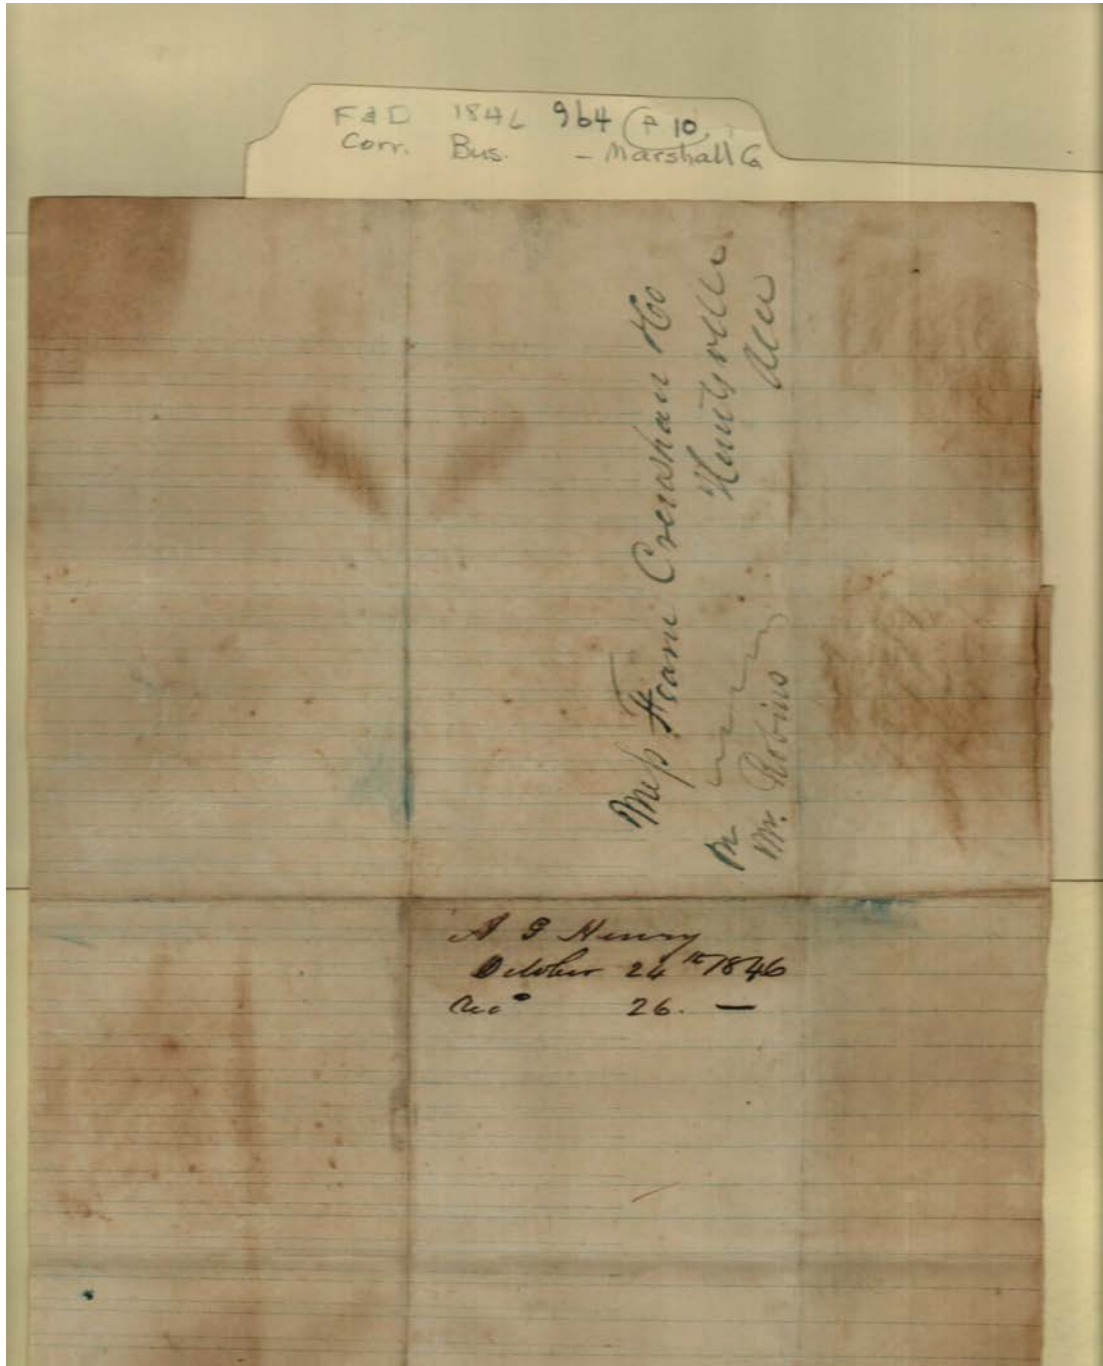 F&D 1846 964 (P 10)
Corr. Bus. - Marshall Co
Mess Fearn Crenshaw & Co
Huntsville
Ala
Pr
Mr. Robins
A G Henry
October 24th 1846
Recd 26. —